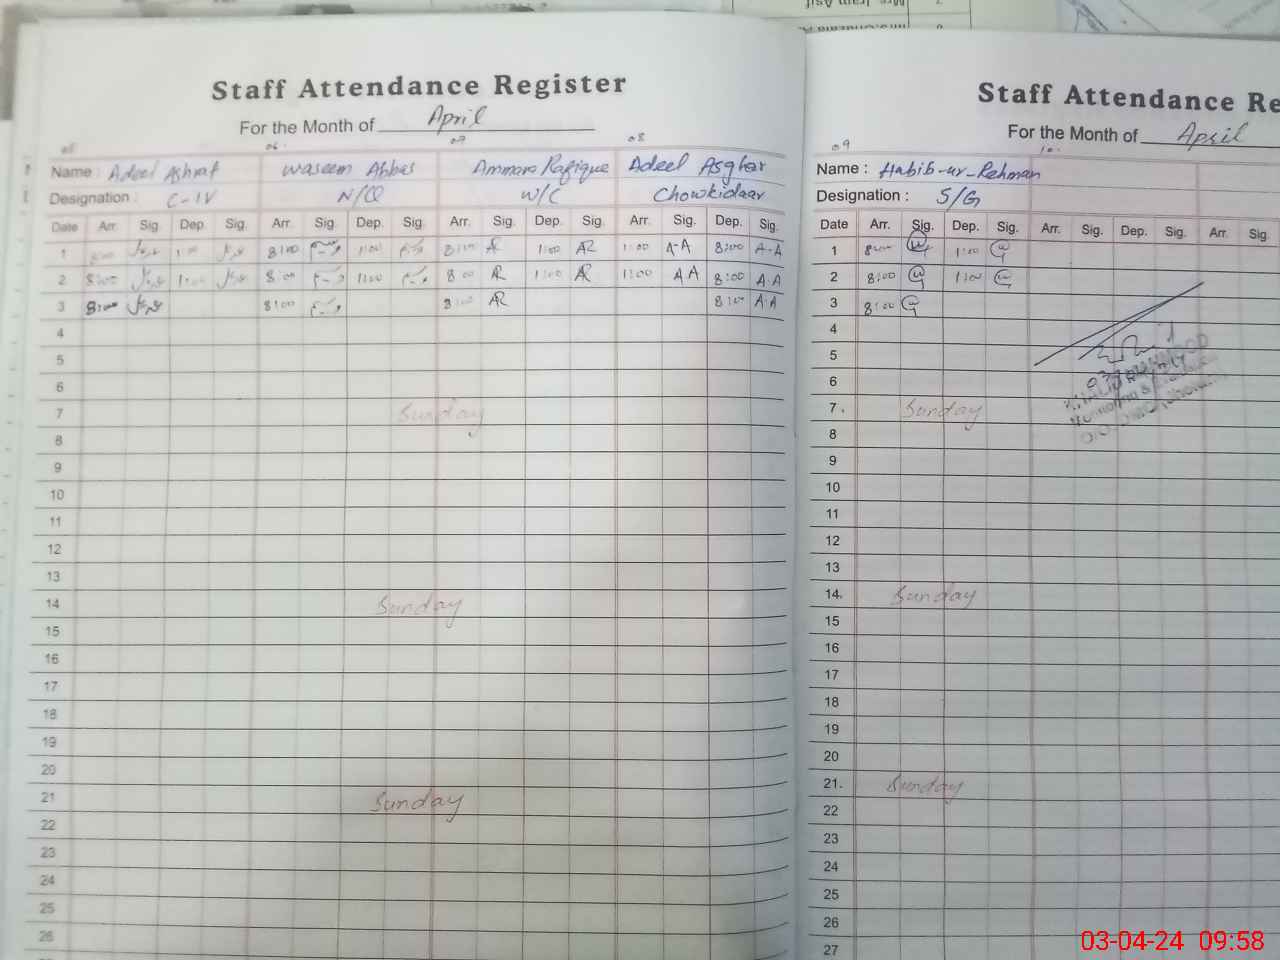 Mrs. Iram Asif
Staff Attendance Register
For the Month of April
05 06. 07 08
Name : Adeel Ashraf Waseem Abbas Ammara Rafique Adeel Asghar
Designation : C-IV N/Q W/C Chowkidaar
Date Arr. Sig Dep. Sig. Arr. Sig. Dep. Sig. Arr. Sig. Dep. Sig. Arr. Sig. Dep. Sig.
1 8:00 1:00 8:00 وسیم 1:00 وسیم 8:00 AR 1:00 AR 1:00 A-A 8:00 A-A
2 8:00 1:00 8:00 وسیم 1:00 وسیم 8:00 AR 1:00 AR 1:00 AA 8:00 A.A
3 8:00 8:00 وسیم 8:00 AR 8:00 A.A
4
5
6
7 Sunday
8
9
10
11
12
13
14 Sunday
15
16
17
18
19
20
21 Sunday
22
23
24
25
26
Staff Attendance Re
For the Month of April
09 10.
Name : Habib-ur-Rehman
Designation : S/G
Date Arr. Sig. Dep. Sig. Arr. Sig. Dep. Sig. Arr. Sig.
1 8:00 1:00
2 8:00 1:00
3 8:00
4
5
6
7. Sunday
8
9
10
11
12
13
14. Sunday
15
16
17
18
19
20
21. Sunday
22
23
24
25
26
27
03-04-24 09:58